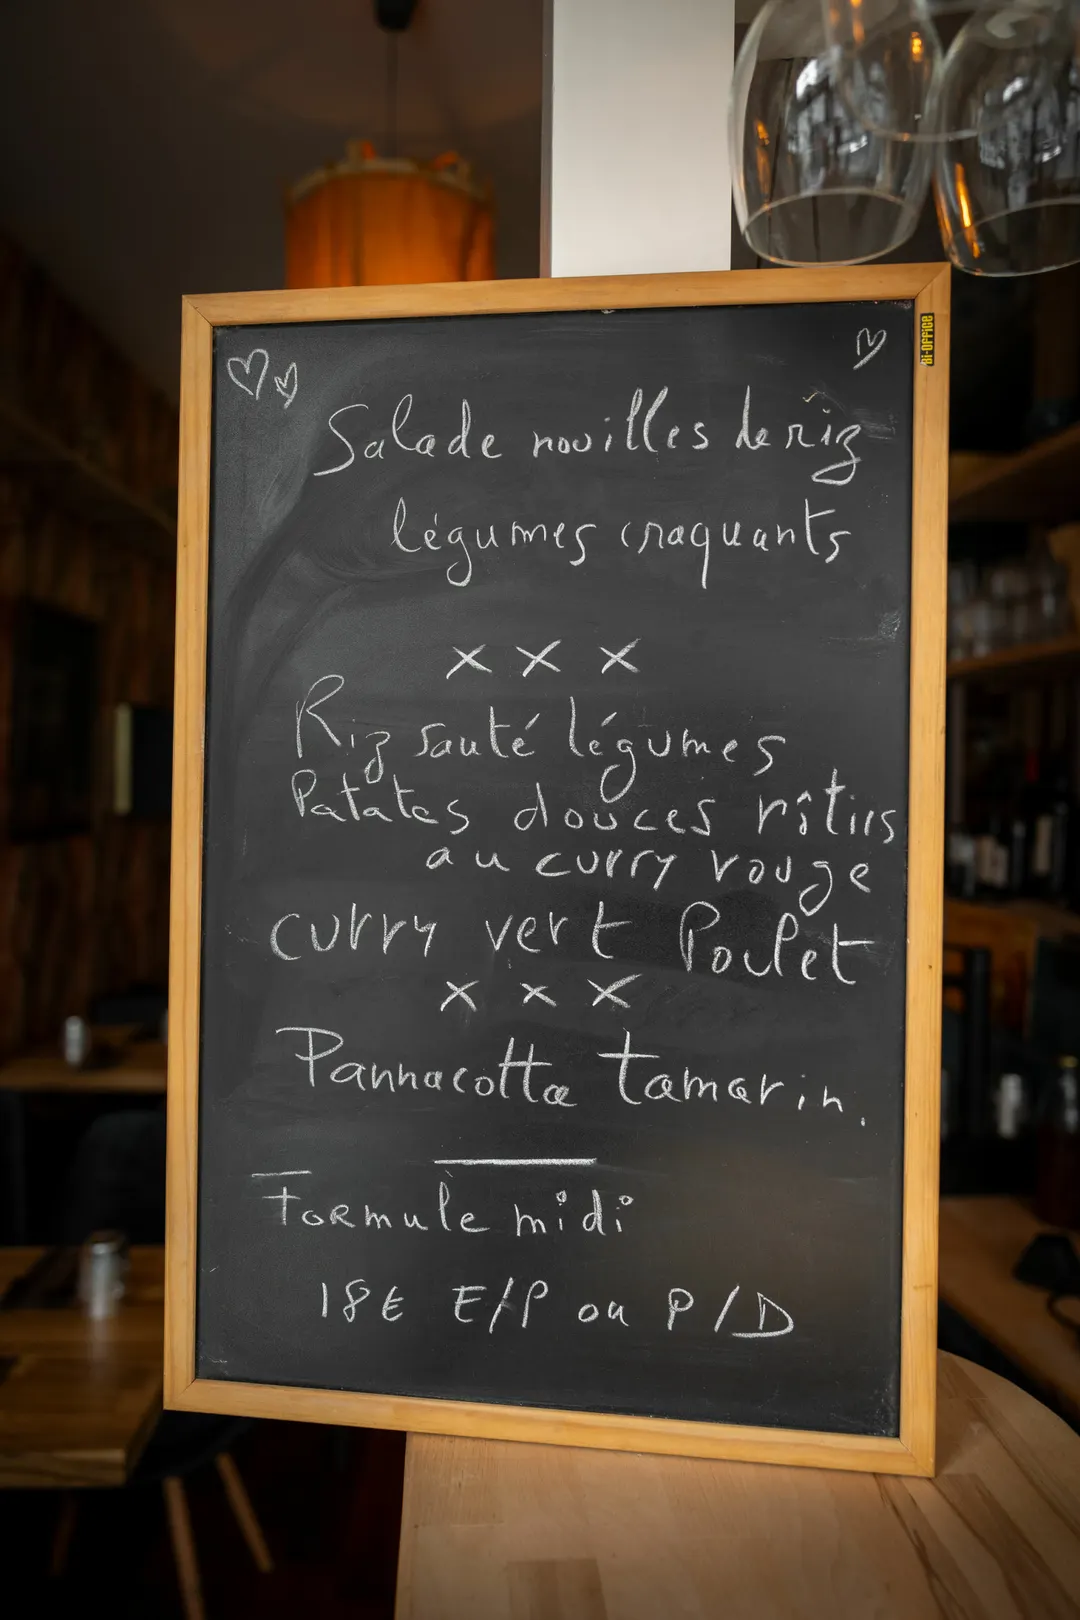 BI-OFFICE
Salade nouilles de riz
légumes craquants
x x x
Riz sauté légumes
Patates douces rôtirs
au curry rouge
curry vert Poulet
x x x
Pannacotta tamarin.
Formule midi
18€ E/P ou P/D